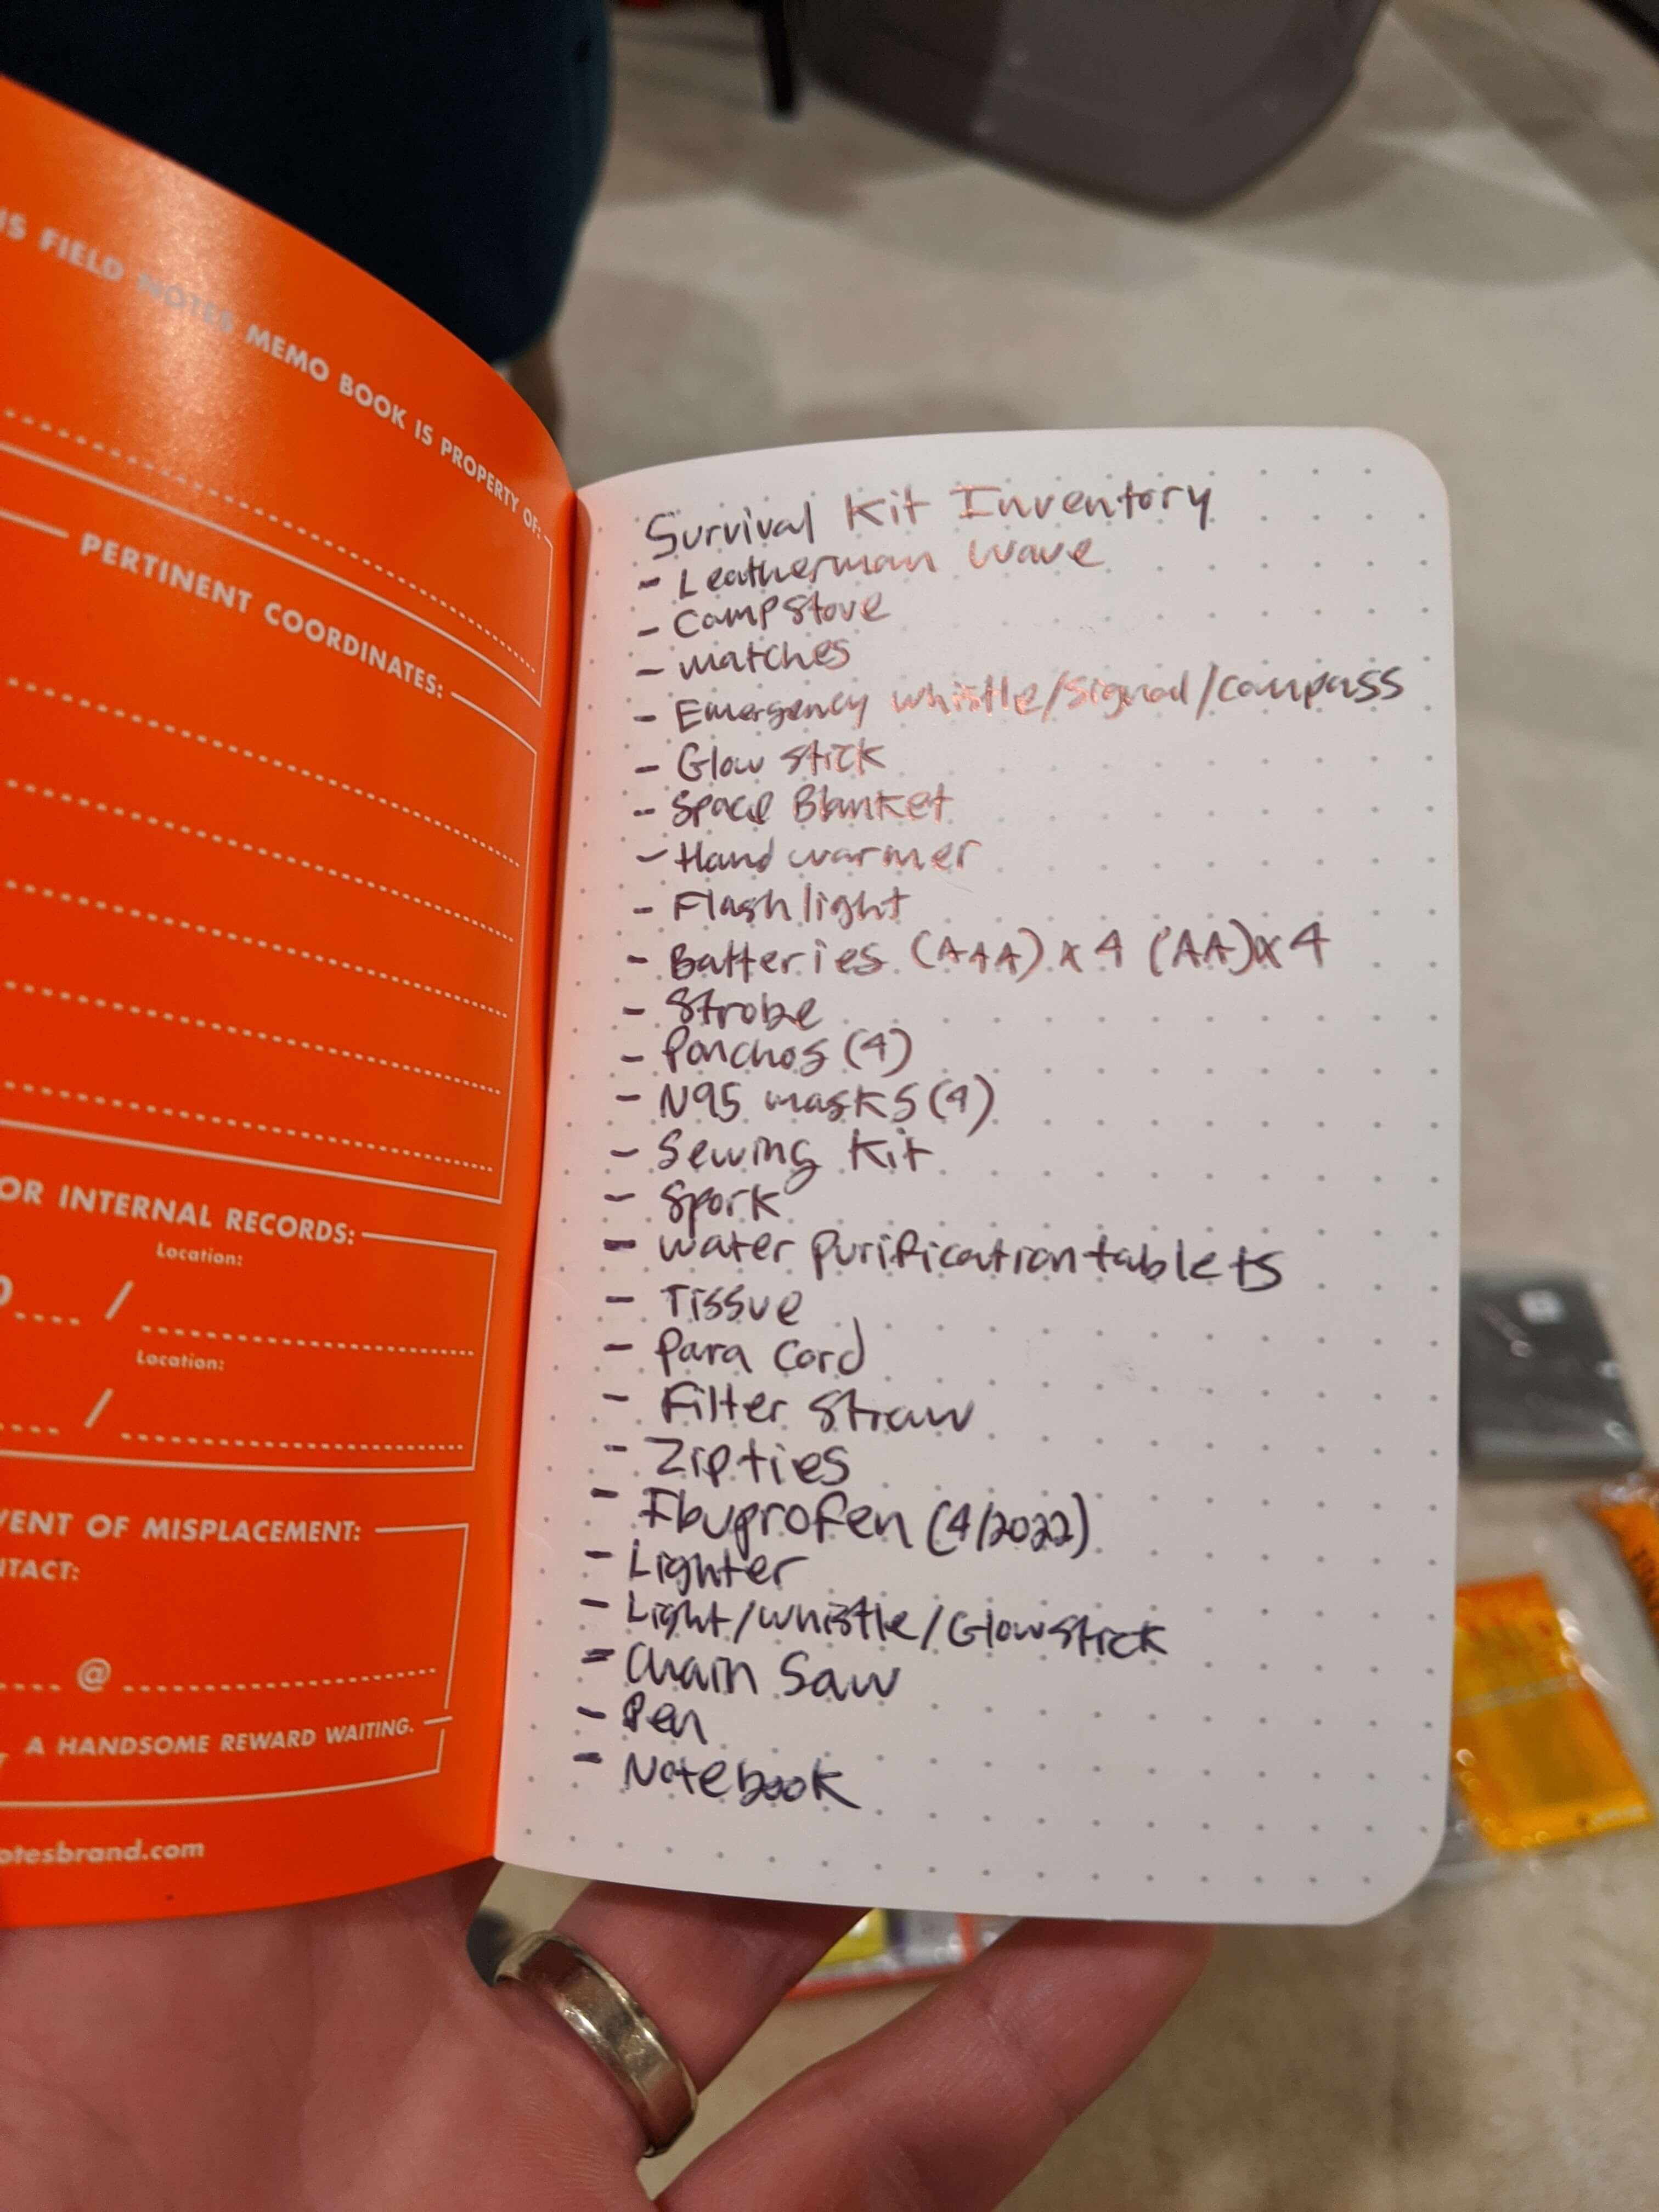 IS FIELD NOTES MEMO BOOK IS PROPERTY OF:
PERTINENT COORDINATES:
OR INTERNAL RECORDS:
Location:
/
Location:
/
VENT OF MISPLACEMENT:
NTACT:
@
A HANDSOME REWARD WAITING.
otesbrand.com
Survival Kit Inventory
- Leatherman Wave
- Camp Stove
- matches
- Emergency whistle/signal/compass
- Glow stick
- Space Blanket
- Hand warmer
- Flash light
- Batteries (AAA) x 4 (AA) x 4
- Strobe
- Ponchos (4)
- N95 masks (4)
- Sewing Kit
- Spork
- water purification tablets
- Tissue
- Para Cord
- Filter Straw
- Zip ties
- Ibuprofen (4/2022)
- Lighter
- Light/whistle/Glowstick
- Chain Saw
- Pen
- Notebook